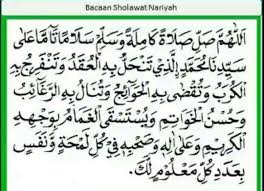 Bacaan Sholawat Nariyah
اَللّٰهُمَّ صَلِّ صَلَاةً كَامِلَةً وَسَلِّمْ سَلَامًا تَامًّا عَلَى
سَيِّدِنَا مُحَمَّدٍ الَّذِي تَنْحَلُّ بِهِ الْعُقَدُ وَتَنْفَرِجُ بِهِ
الْكُرَبُ وَتُقْضَى بِهِ الْحَوَائِجُ وَتُنَالُ بِهِ الرَّغَائِبُ
وَحُسْنُ الْخَوَاتِمِ وَيُسْتَسْقَى الْغَمَامُ بِوَجْهِهِ
الْكَرِيْمِ وَعَلَى اٰلِهِ وَصَحْبِهِ فِي كُلِّ لَمْحَةٍ وَنَفَسٍ
بِعَدَدِ كُلِّ مَعْلُوْمٍ لَكَ